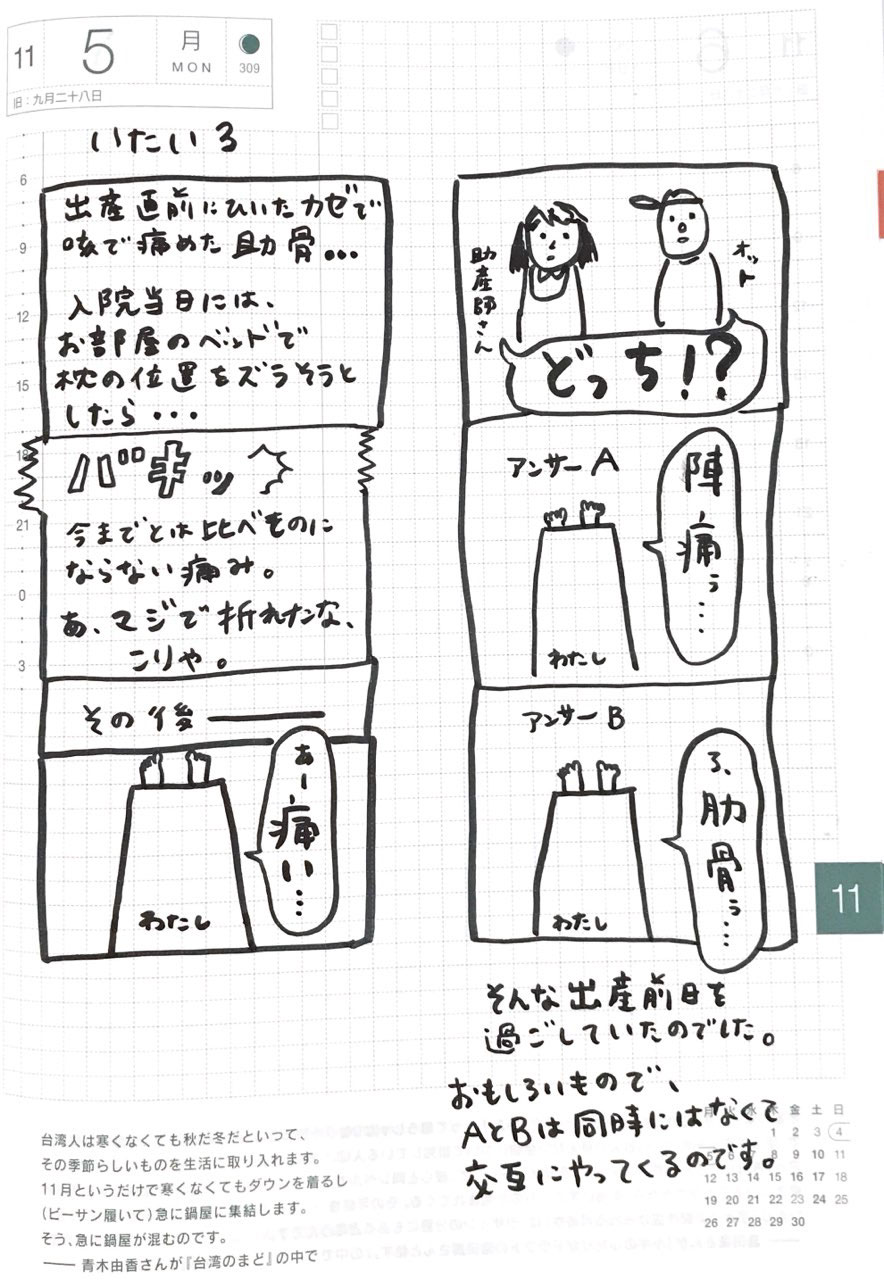 11
5
月
MON
309
旧：九月二十八日
いたい3
6
9
12
15
18
21
0
3
出産直前にひいたカゼで
咳で痛めた助骨...
入院当日には、
お部屋のベッドで
枕の位置をズラそうと
したら...
バキッ
今までとは比べものに
ならない痛み。
あ、マジで折れたな、
こりゃ。
その後――
あー痛い…
わたし
助産師さん
オット
どっち!?
アンサーA
陣痛ぅ…
わたし
アンサーB
ろ、肋骨ぅ…
わたし
そんな出産前日を
過ごしていたのでした。
おもしろいもので、
AとBは同時にはなくて
交互にやってくるのです。
11
台湾人は寒くなくても秋だ冬だといって、
その季節らしいものを生活に取り入れます。
11月というだけで寒くなくてもダウンを着るし
(ビーサン履いて)急に鍋屋に集結します。
そう、急に鍋屋が混むのです。
―― 青木由香さんが『台湾のまど』の中で
月 火 水 木 金 土 日
1 2 3 4
5 6 7 8 9 10 11
12 13 14 15 16 17 18
19 20 21 22 23 24 25
26 27 28 29 30